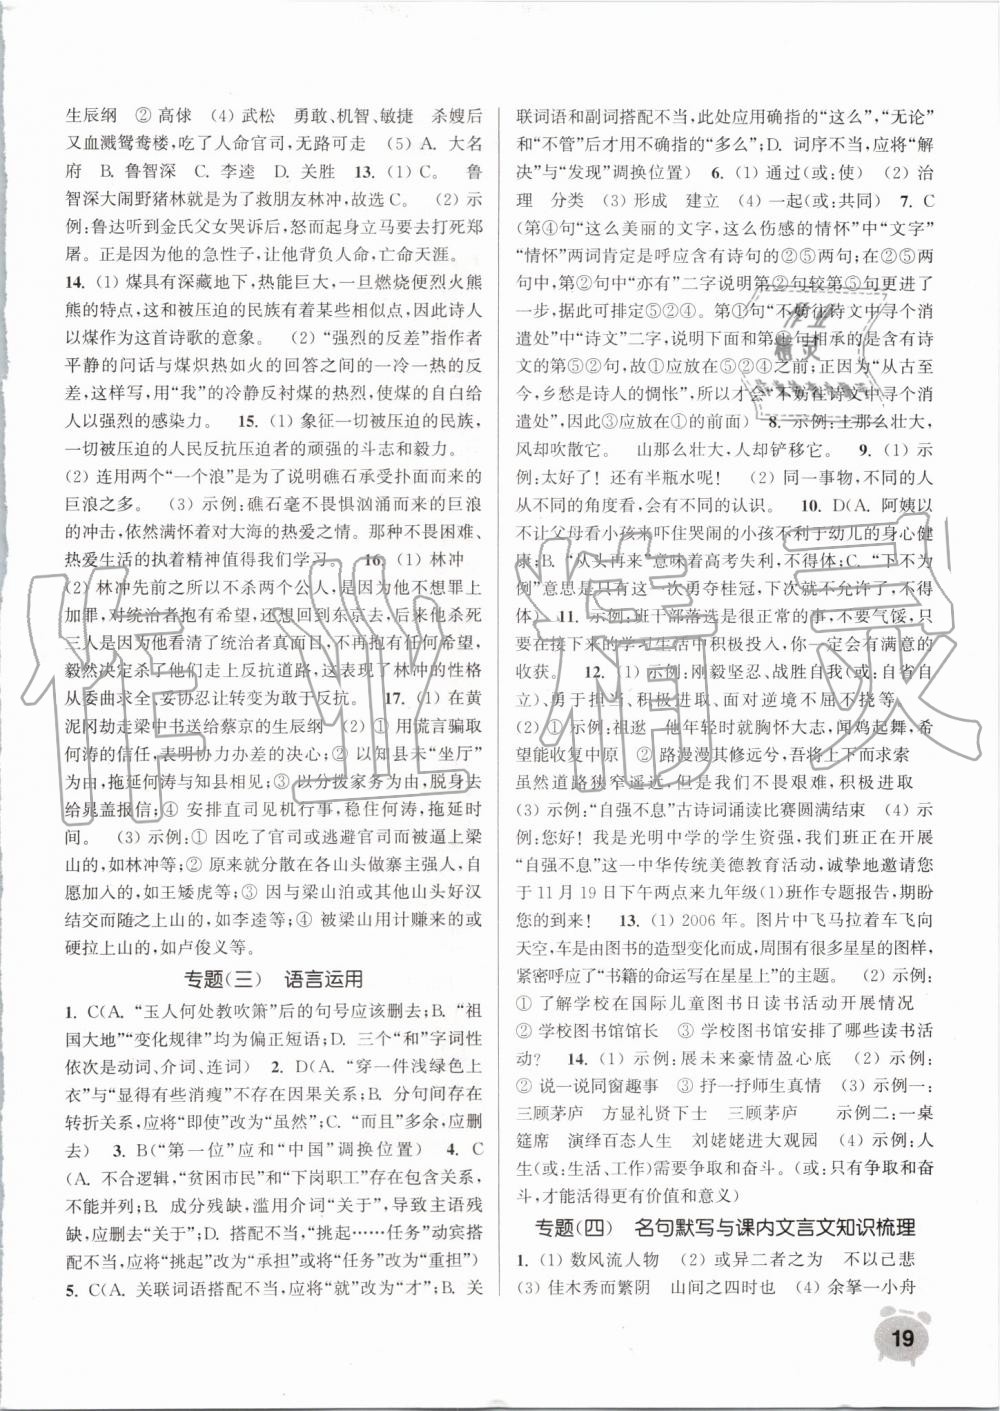 生辰纲　② 高俅　(4) 武松　勇敢、机智、敏捷　杀嫂后
又血溅鸳鸯楼,吃了人命官司,无路可走　(5) A. 大名
府　B. 鲁智深　C. 李逵　D. 关胜　13. (1) C。　鲁
智深大闹野猪林就是为了救朋友林冲,故选C。　(2) 示
例:鲁达听到金氏父女哭诉后,怒而起身立马要去打死郑
屠。正是因为他的急性子,让他背负人命,亡命天涯。
14. (1) 煤具有深藏地下,热能巨大,一旦燃烧便烈火熊
熊的特点,这和被压迫的民族有着某些相似点,因此诗人
以煤作为这首诗歌的意象。　(2) “强烈的反差”指作者
平静的问话与煤炽热如火的回答之间的一冷一热的反
差,这样写,用“我”的冷静反衬煤的热烈,使煤的自白给
人以强烈的感染力。　15. (1) 象征一切被压迫的民族,
一切被压迫的人民反抗压迫者的顽强的斗志和毅力。
(2) 连用两个“一个浪”是为了说明礁石承受扑面而来的
巨浪之多。　(3) 示例:礁石毫不畏惧汹涌而来的巨浪
的冲击,依然满怀着对大海的热爱之情。　那种不畏困难、
热爱生活的执着精神值得我们学习。　16. (1) 林冲
(2) 林冲先前之所以不杀两个公人,是因为他不想罪上
加罪,对统治者抱有希望,还想回到东京去;后来他杀死
三人是因为他看清了统治者真面目,不再抱有任何希望,
毅然决定杀了他们走上反抗道路,这表现了林冲的性格
从委曲求全、妥协忍让转变为敢于反抗。　17. (1) 在黄
泥冈劫走梁中书送给蔡京的生辰纲　(2) ① 用谎言骗取
何涛的信任,表明协力办差的决心;② 以知县未“坐厅”
为由,拖延何涛与知县相见;③ 以分拨家务为由,脱身去
给晁盖报信;④ 安排直司见机行事,稳住何涛,拖延时
间。　(3) 示例:① 因吃了官司或逃避官司而被逼上梁
山的,如林冲等;② 原来就分散在各山头做寨主强人,自
愿加入的,如王矮虎等;③ 因与梁山泊或其他山头好汉
结交而随之上山的,如李逵等;④ 被梁山用计赚来的或
硬拉上山的,如卢俊义等。
专题(三)　语言运用
1. C(A. “玉人何处教吹箫”后的句号应该删去;B. “祖
国大地”“变化规律”均为偏正短语;D. 三个“和”字词性
依次是动词、介词、连词)　2. D(A. “穿一件浅绿色上
衣”与“显得有些消瘦”不存在因果关系;B. 分句间存在
转折关系,应将“即使”改为“虽然”;C. “而且”多余,应删
去)　3. B(“第一位”应和“中国”调换位置)　4. C
(A. 不合逻辑,“贫困市民”和“下岗职工”有包含关系,
不能并列;B. 成分残缺,滥用介词“关于”,导致主语残
缺,应删去“关于”;D. 搭配不当,“挑起……任务”动宾搭
配不当,应将“挑起”改为“承担”或者将“任务”改为“重担”)
5. C(A. 关联词语搭配不当,应将“就”改为“才”;B. 关
联词语和副词搭配不当,此处应用确指的“这么”,“无论”
和“不管”后才用不确指的“多么”;D. 词序不当,应将“解
决”与“发现”调换位置)　6. (1) 通过(或:使)　(2) 治
理　分类　(3) 形成　建立　(4) 一起(或:共同)　7. C
(第④句“这么美丽的文字,这么伤感的情怀”中“文字”
“情怀”两词肯定是呼应含有诗句的②⑤两句,在②⑤两
句中,第②句中“亦有”二字说明第②句较第⑤句更进了
一步,据此可排定⑤②④。第①句“不妨在诗文中寻个消
遣处”中“诗文”二字,说明与第①句相承的是含有诗句的
⑤②④句,故①后紧承⑤②④句。而第③句“千百年以
来,乡愁总是诗人的惆怅”,所以才会“不妨在诗文中寻个消
遣处”,因此③应放在①的前面)　8. 示例:土那么壮大,
风却吹散它。　山那么壮大,人却铲移它。　9. (1) 示
例:太好了! 还有半瓶水呢!　(2) 同一事物,不同的人
从不同的角度看,会有不同的认识。　10. D(A. 阿姨以
不让父母看小孩来吓住哭闹的小孩不利于幼儿的身心健
康;B. “从头再来”意味着高考失利,不得体;C. “下不为
例”意思是只有这一次勇夺桂冠,下次就不允许了,不得
体)　11. 示例:班干部落选是很正常的事,不要气馁,只
要在接下来的学习生活中积极投入,你一定会有满意的
收获。　12. (1) 示例:刚毅坚忍、战胜自我(或:自省自
立)、勇于担当、积极进取、面对逆境不屈不挠等。
(2) ① 示例:祖逖　他年轻时就胸怀大志,闻鸡起舞,希
望能收复中原　② 路漫漫其修远兮,吾将上下而求索
虽然道路狭窄遥远,但是我们不畏艰难,积极进取
(3) 示例:“自强不息”古诗词诵读比赛圆满结束　(4) 示
例:您好! 我是光明中学的学生资强,我们班正在开展
“自强不息”这一中华传统美德教育活动,诚挚地邀请您
于11月19日下午两点来九年级(1)班作专题报告,期盼
您的到来!　13. (1) 2006年。图片中飞马拉着车飞向
天空,车是由图书的造型变化而成,并有很多星星的图样,
紧密呼应了“书籍的命运写在星星上”的主题。　(2) 示例:
① 了解学校在国际儿童图书日读书活动开展情况
② 学校图书馆馆长　③ 学校图书馆安排了哪些读书活
动?　14. (1) 示例:展未来豪情盈心底　(2) 示例:
② 说一说同窗趣事　③ 抒一抒师生真情　(3) 示例一:
三顾茅庐　方显礼贤下士　三顾茅庐　示例二:一桌
筵席　演绎百态人生　刘姥姥进大观园　(4) 示例:人
生(或:生活、工作)需要争取和奋斗。(或:只有争取和奋
斗,才能活得更有价值和意义)
专题(四)　名句默写与课内文言文知识梳理
1. (1) 数风流人物　(2) 或异二者之为　不以己悲
(3) 佳木秀而繁阴　山间之四时也　(4) 余拏一小舟
19
作业精灵